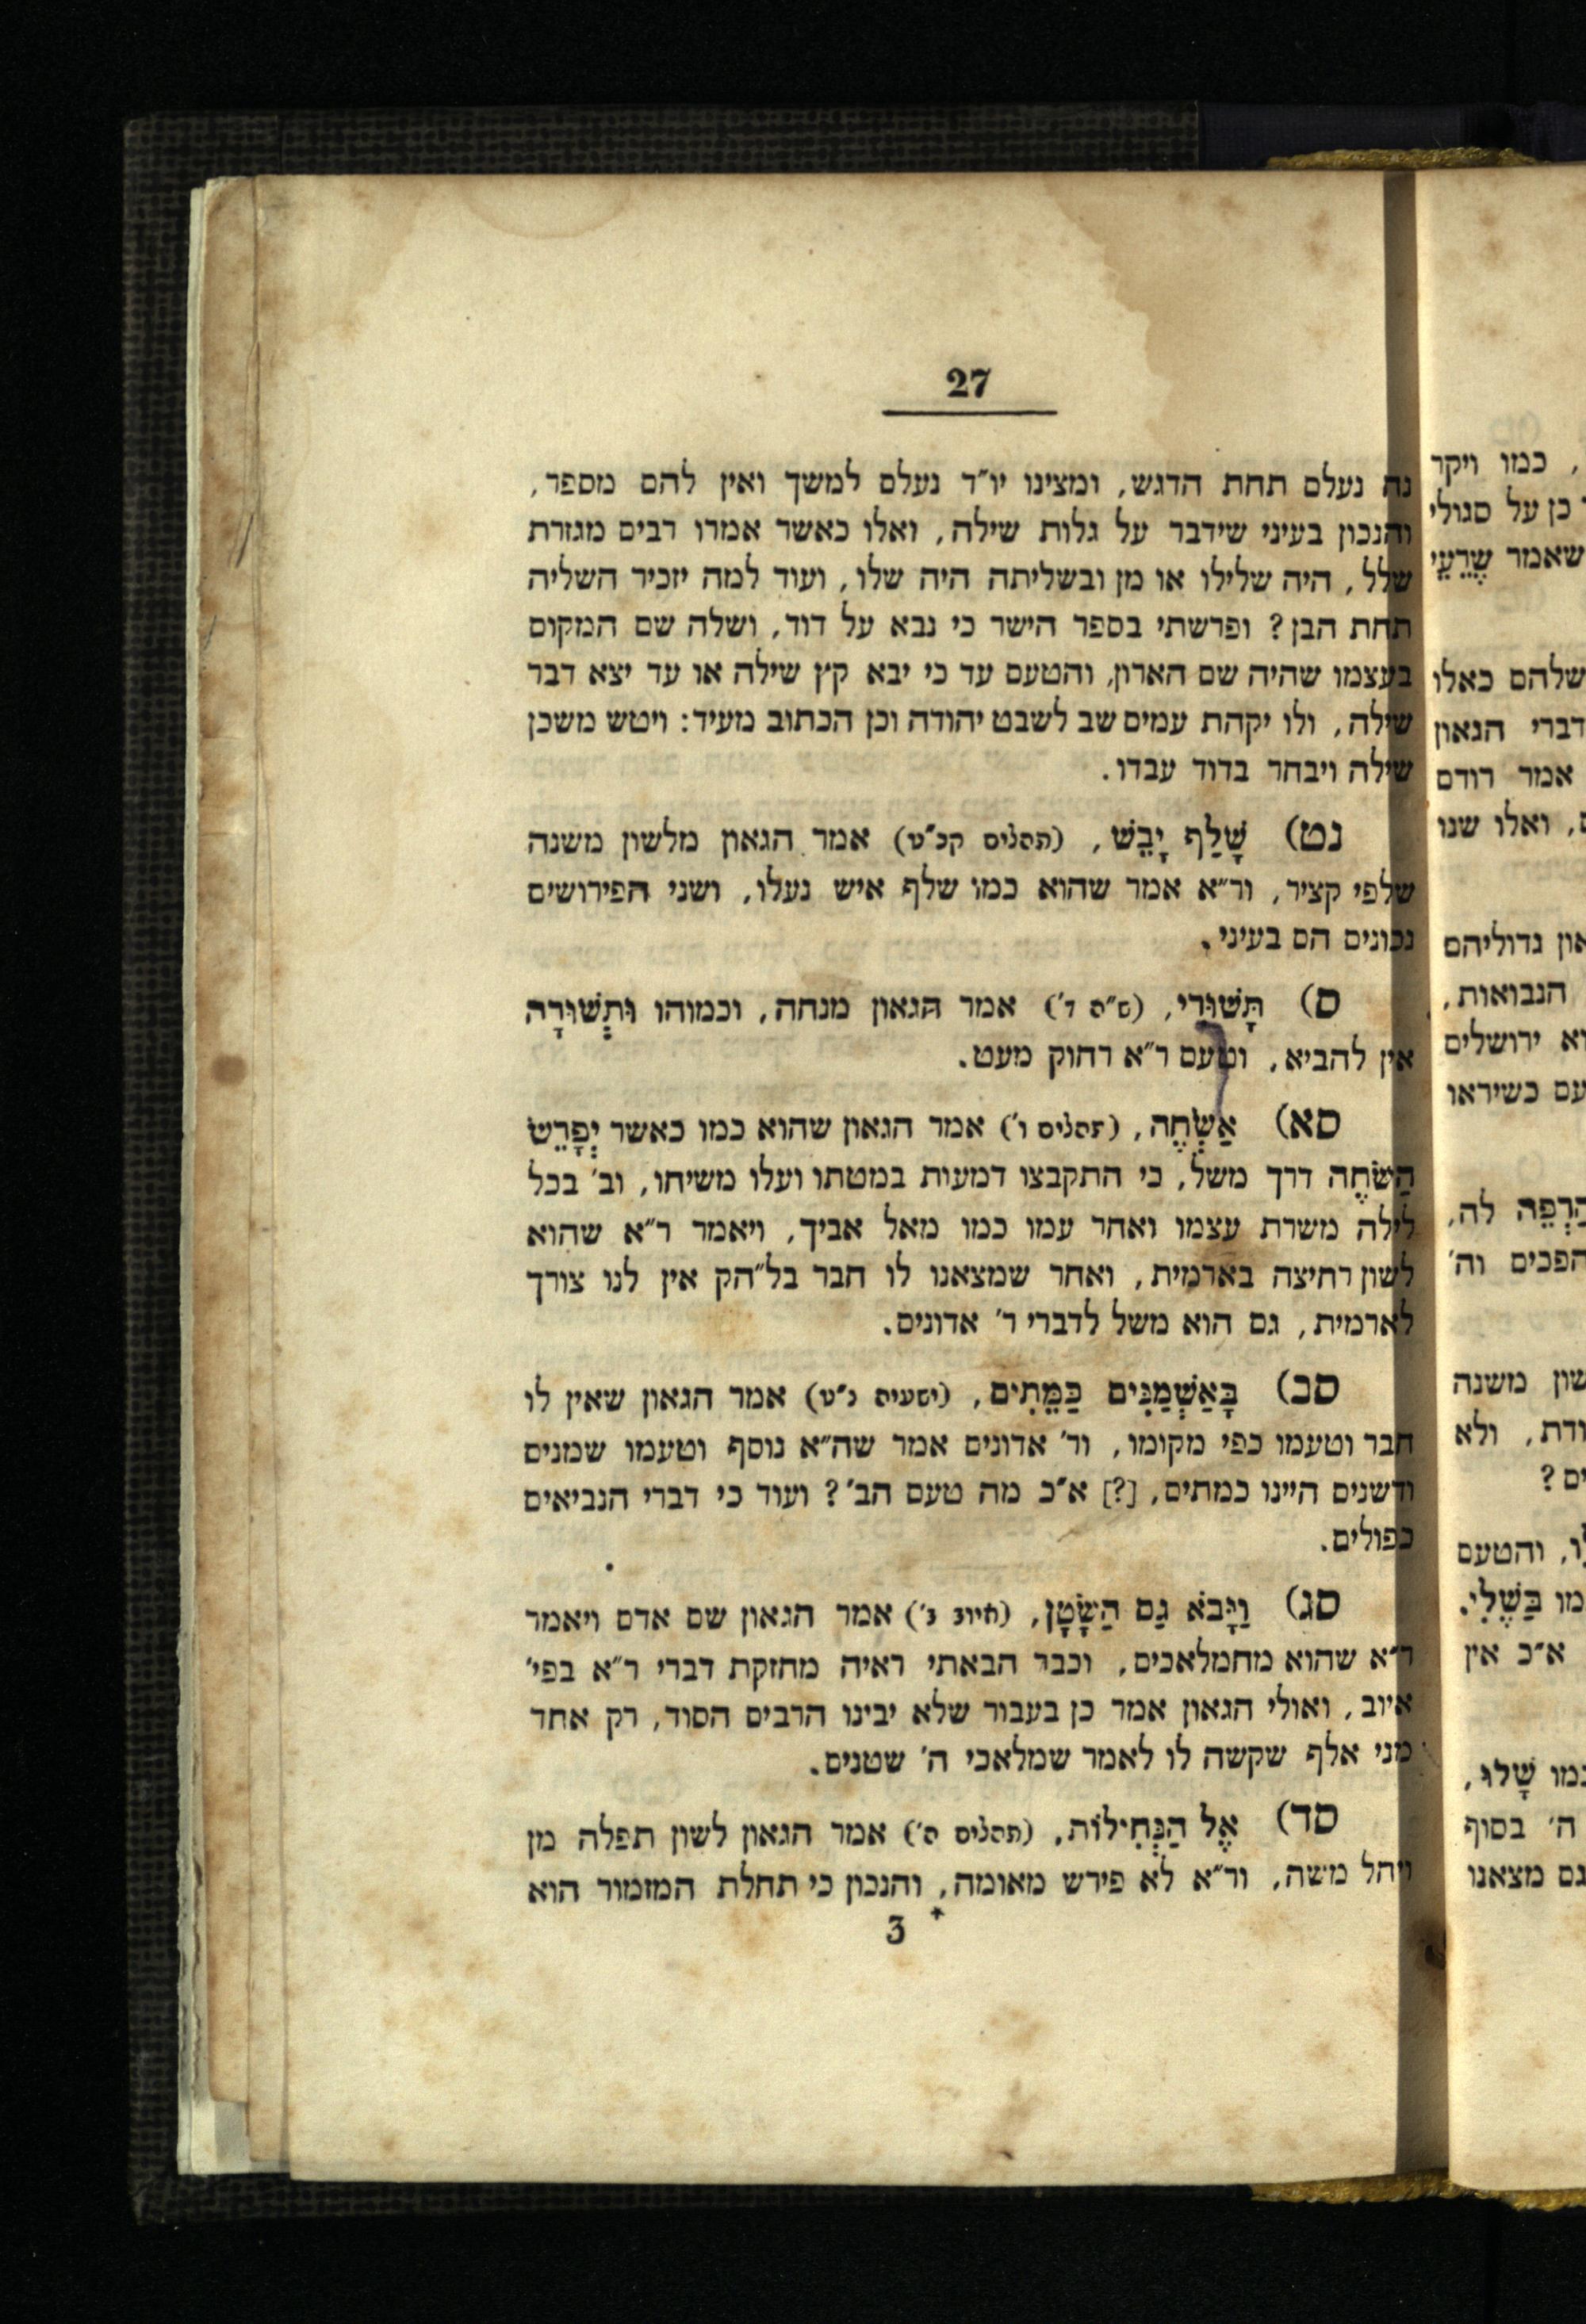 27
נח נעלם תחת הדגש, ומצינו יו״ד נעלם למשך ואין להם מספר,
והנכון בעיני שידבר על גלות שילה, ואלו כאשר אמרו רבים מגזרת
שלל, היה שלילו או מן ובשליתה היה שלו, ועוד למה יזכיר השליה
תחת הבן? ופרשתי בספר הישר כי נבא על דוד, ושלה שם המקום
בעצמו שהיה שם הארון, והטעם עד כי יבא קץ שילה או עד יצא דבר
שילה, ולו יקהת עמים שב לשבט יהודה וכן הכתוב מעיד: ויטש משכן
שילה ויבחר בדוד עבדו.
נט) שָׁלַף יָבֵשׁ, (תהלים קכ״ט) אמר הגאון מלשון משנה
שלפי קציר, ור״א אמר שהוא כמו שלף איש נעלו, ושני הפירושים
נכונים הם בעיני.
ס) תָּשׁוּרִי, (ש״ה ד׳) אמר הגאון מנחה, וכמוהו וּתְשׁוּרָה
אין להביא, וטעם ר״א רחוק מעט.
סא) אַשְׂחֶה, (תהלים ו׳) אמר הגאון שהוא כמו כאשר יְפָרֵשׂ
הַשּׂחֶה דרך משל, כי התקבצו דמעות במטתו ועלו משיחו, וב׳ בכל
לילה משרת עצמו ואחר עמו כמו מאל אביך, ויאמר ר״א שהוא
לשון רחיצה בארמית, ואחר שמצאנו לו חבר בל״הק אין לנו צורך
לארמית, גם הוא משל לדברי ר׳ אדונים.
סב) בָּאַשְׁמַנִּים כַּמֵּתִים, (ישעיה נ״ט) אמר הגאון שאין לו
חבר וטעמו כפי מקומו, ור׳ אדונים אמר שה״א נוסף וטעמו שמנים
ודשנים היינו כמתים, [?] א״כ מה טעם הב׳? ועוד כי דברי הנביאים
כפולים.
סג) וַיָּבֹא גַם הַשָּׂטָן, (איוב ב׳) אמר הגאון שם אדם ויאמר
ר״א שהוא מהמלאכים, וכבר הבאתי ראיה מחזקת דברי ר״א בפי׳
איוב, ואולי הגאון אמר כן בעבור שלא יבינו הרבים הסוד, רק אחד
מני אלף שקשה לו לאמר שמלאכי ה׳ שטנים.
סד) אֶל הַנְּחִילוֹת, (תהלים ה׳) אמר הגאון לשון תפלה מן
ויחל משה, ור״א לא פירש מאומה, והנכון כי תחלת המזמור הוא
3*
, כמו ויקר
כן על סגולי
שאמר שֶׁרֵעֲי
שלהם כאלו
דברי הגאון
אמר רודם
, ואלו שנו
און גדוליהם
הנבואות,
וא ירושלים
עם כשיראו
הַרְפֵּה לה,
הפכים וה׳
שון משנה
ודת, ולא
ים?
ו, והטעם
מו בַּשֶּׁלִי.
א״כ אין
כמו שָׁלוּ,
ה׳ בסוף
גם מצאנו